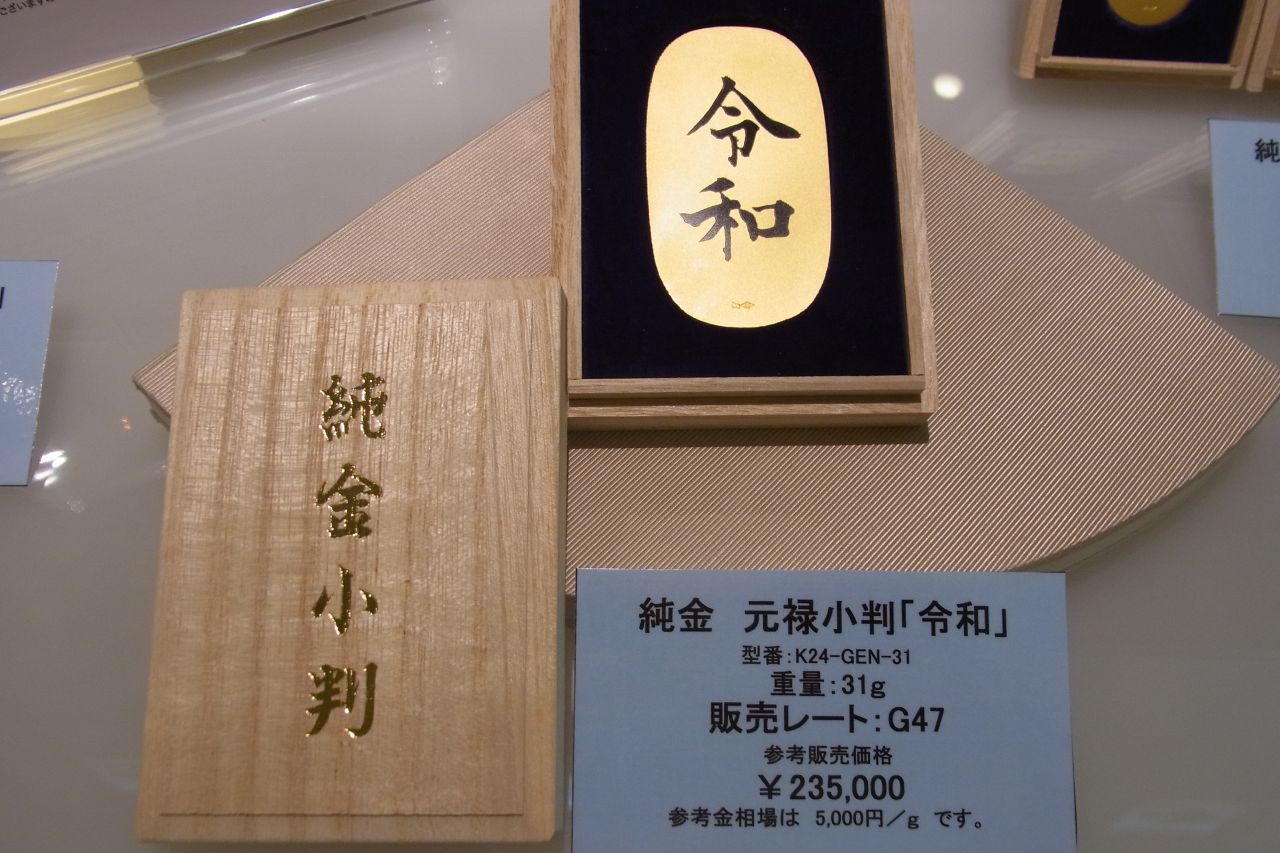 ございます
令和
純金小判
純金 元禄小判「令和」
型番:K24-GEN-31
重量:31g
販売レート:G47
参考販売価格
¥235,000
参考金相場は 5,000円/g です。
純